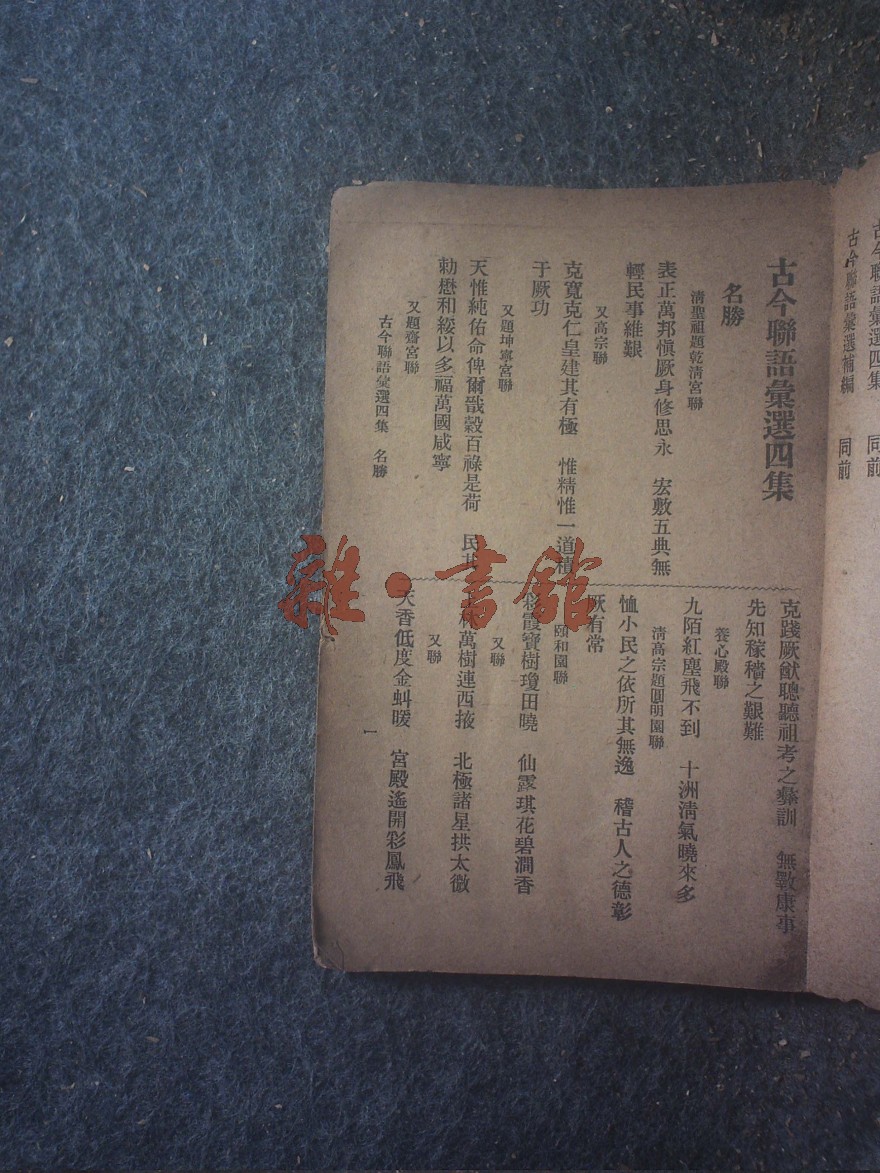 古今聯語彙選四集 同前
古今聯語彙選補編 同前
古今聯語彙選四集
名勝
清聖祖題乾清宮聯
表正萬邦愼厥身修思永 宏敷五典無
輕民事維艱
又高宗聯
克寬克仁皇建其有極 惟精惟一道積
于厥功
又題坤寧宮聯
天惟純佑命俾爾戩穀百祿是荷 民
勅懋和綏以多福萬國咸寧
又題齋宮聯
古今聯語彙選四集 名勝
克踐厥猷聰聽祖考之彝訓 無斁康事
先知稼穡之艱難
養心殿聯
九陌紅塵飛不到 十洲淸氣曉來多
淸高宗題圓明園聯
恤小民之依所其無逸 稽古人之德彰
厥有常
頤和園聯
霞寶樹瓊田曉 仙露琪花碧澗香
又聯
林萬樹連西掖 北極諸星拱太微
又聯
天香低度金虯暖 宮殿遙開彩鳳飛
一
雜·書館